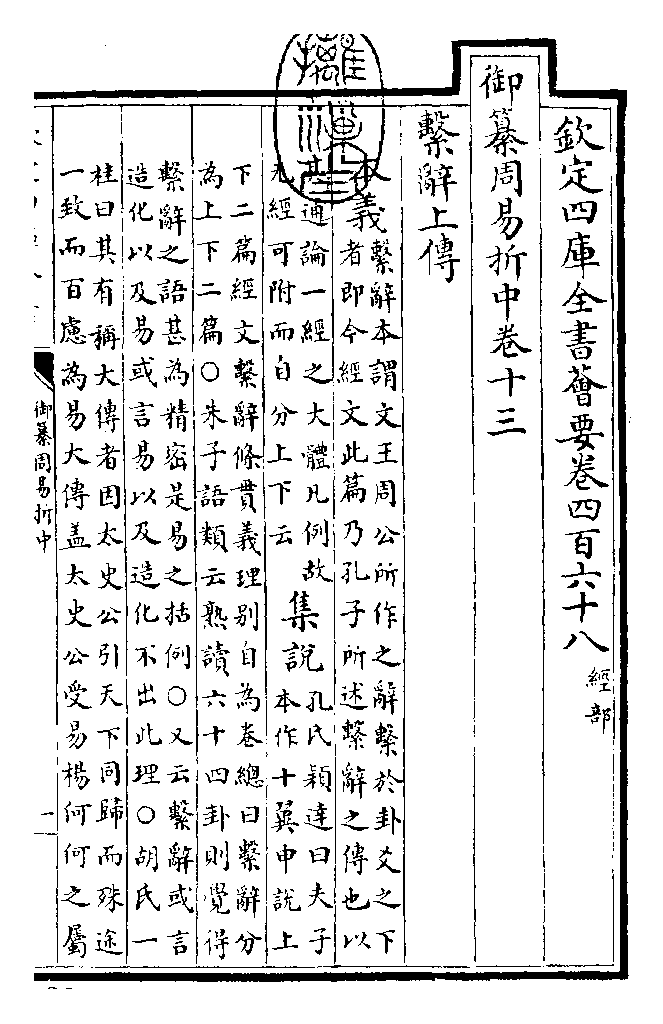 欽定四庫全書薈要卷四百六十八
經部
御纂周易折中卷十三
繫辭上傳
本義
繫辭本謂文王周公所作之辭繫於卦爻之下
者即今經文此篇乃孔子所述繫辭之傳也以
其通論一經之大體凡例故
无經可附而自分上下云
集說
孔氏穎達曰夫子
本作十翼申說上
下二篇經文繫辭條貫義理别自為卷總曰繫辭分
為上下二篇○朱子語類云熟讀六十四卦則覺得
繫辭之語甚為精密是易之括例○又云繫辭或言
造化以及易或言易以及造化不出此理○胡氏一
桂曰其有稱大傳者因太史公引天下同歸而殊途
一致而百慮為易大傳盖太史公受易楊何何之屬
御纂周易折中
一